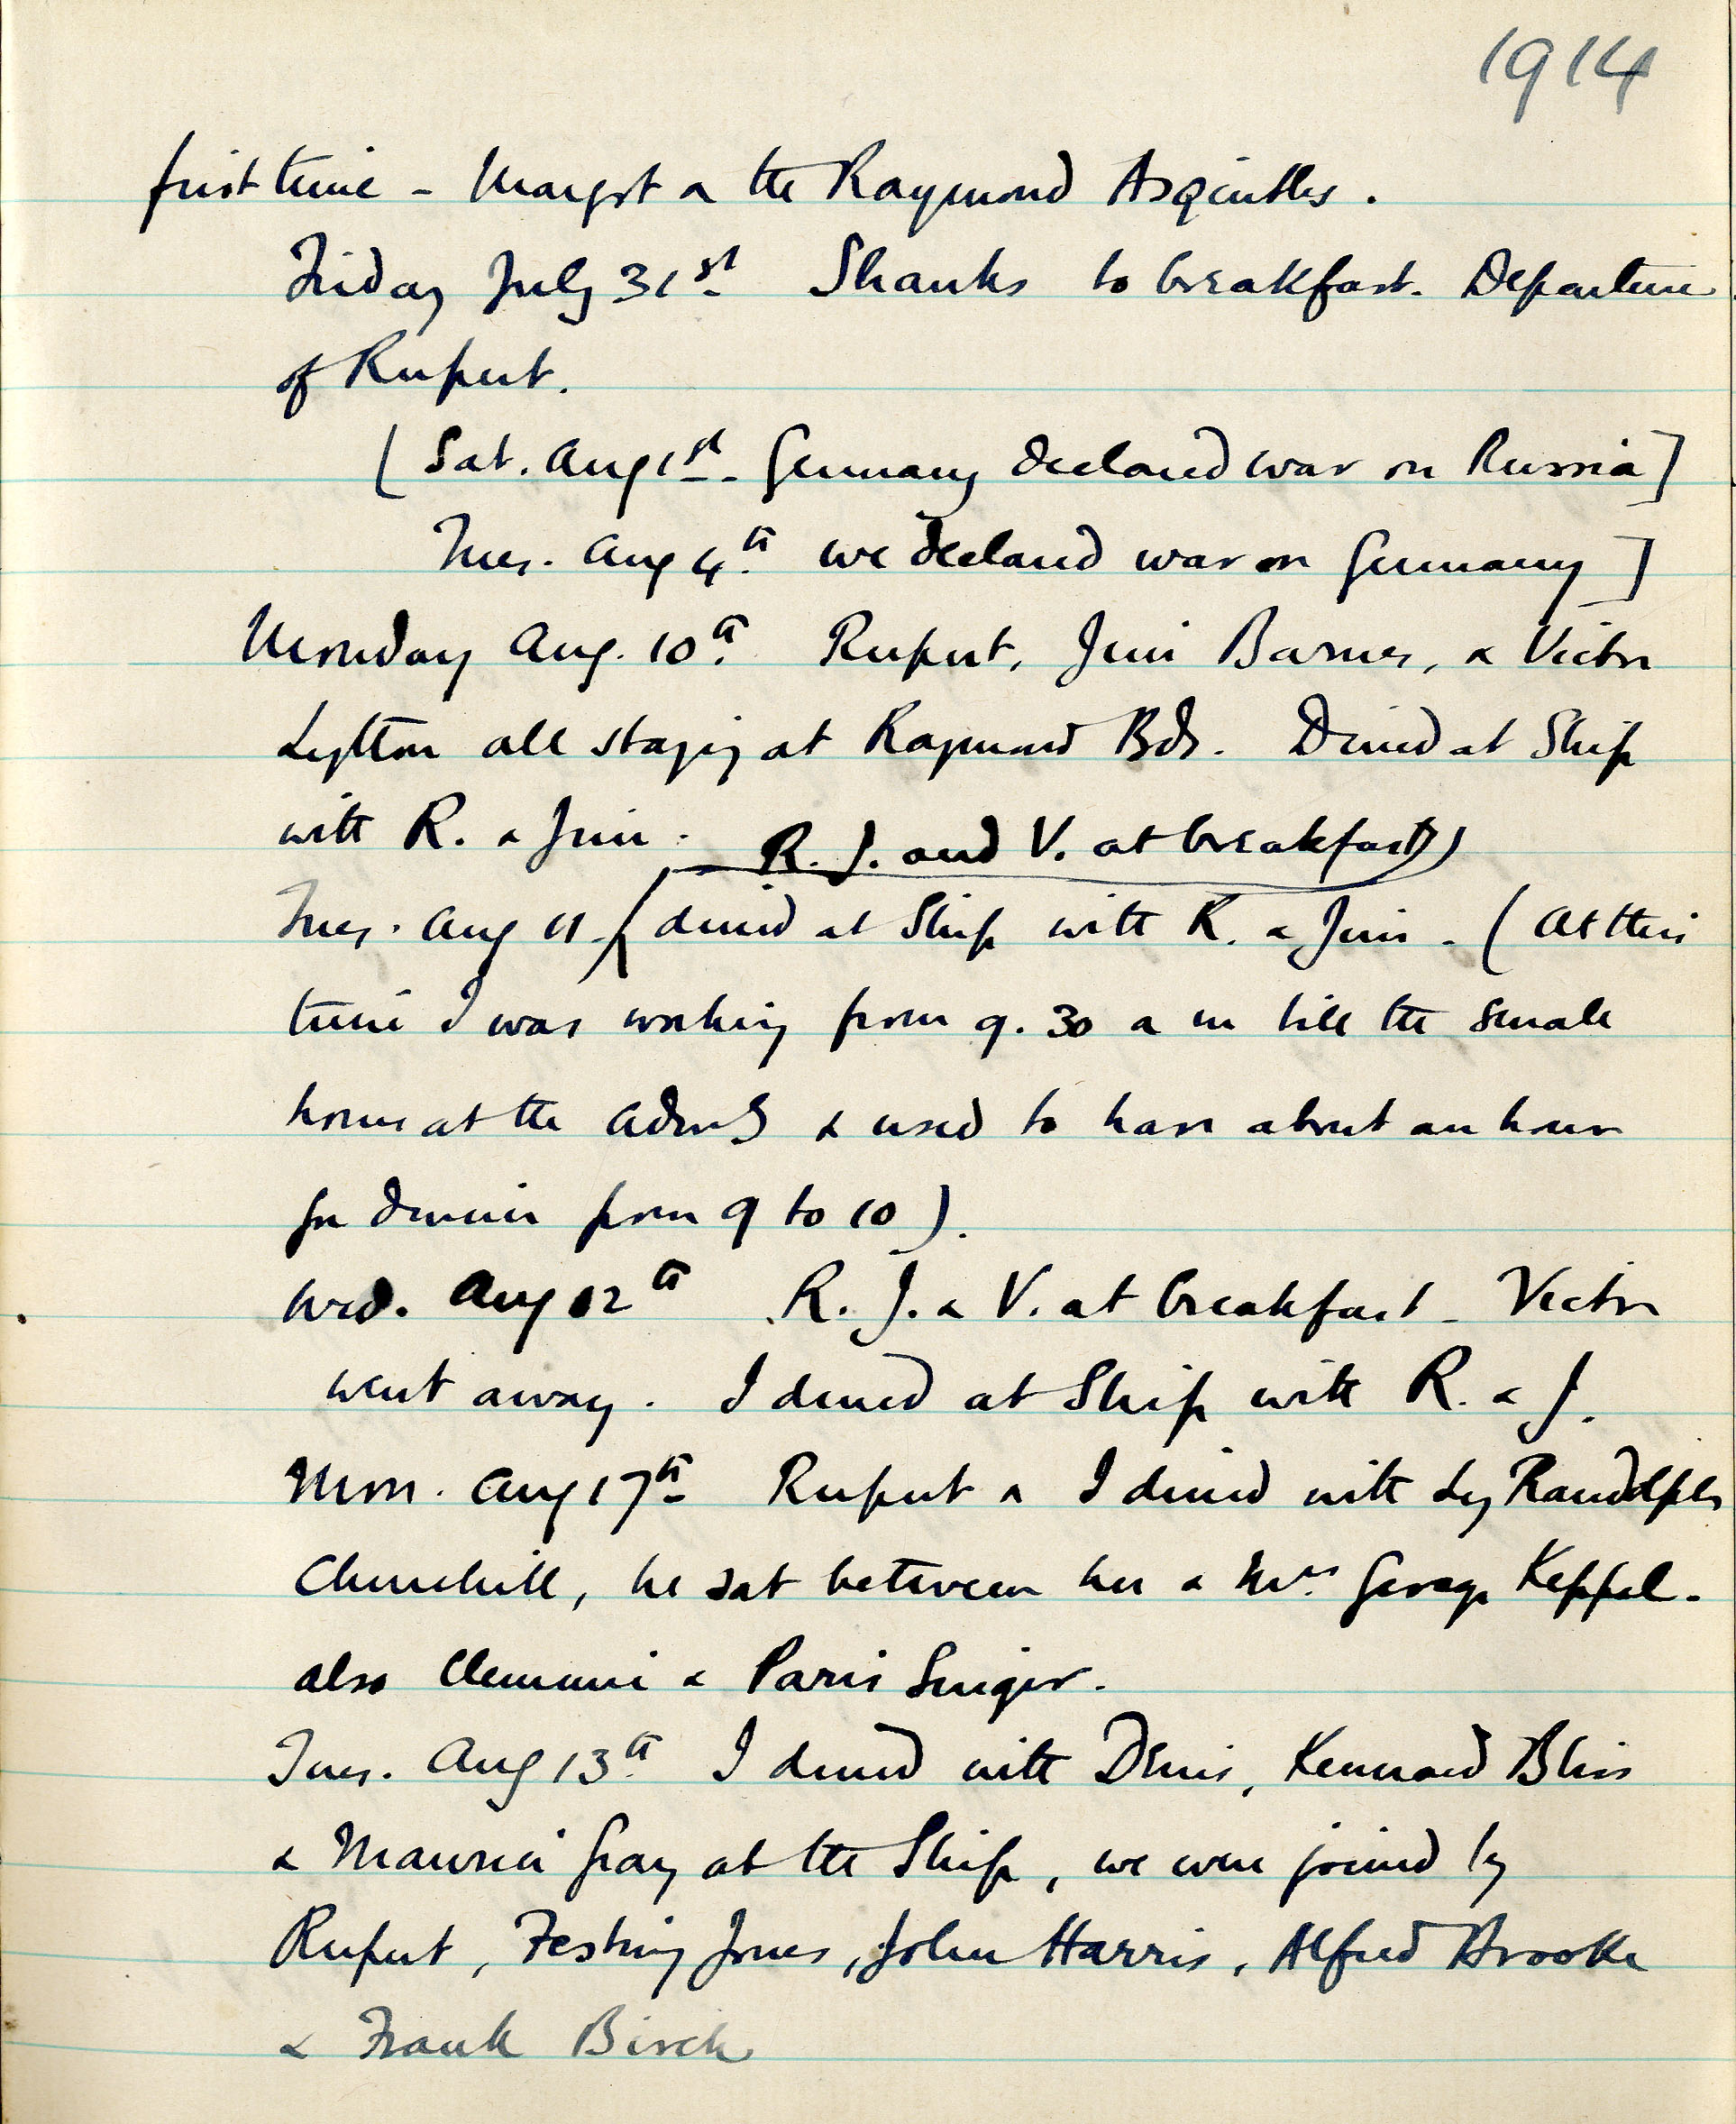 1914
first time - Margot & the Raymond Asquiths.
Friday July 31st Shanks to breakfast. Departure
of Rupert.
[Sat. Aug 1st. Germany declared war on Russia]
Tues. Aug 4th we declared war on Germany]
Monday Aug. 10th. Rupert, Jim Barnes, & Victor
Lytton all staying at Raymond Bds. Dined at Ship
with R. & Jim.
R. J. and V. at breakfast)
Tues. Aug 11 (dined at Ship with R. & Jim. (At this
time I was working from 9.30 a m till the small
hours at the Adm & used to have about an hour
for dinner from 9 to 10).
Wed. Aug 12th R. J. & V. at breakfast - Victor
went away. I dined at Ship with R. & J.
Mon. Aug 17th Rupert & I dined with Ly Randolph
Churchill, he sat between her & Mrs. George Keppel.
also Clemmie & Paris Singer.
Tues. Aug 13th. I dined with Denis, Kennard Bliss
& Maurice Gray at the Ship, we were joined by
Rupert, Festing Jones, John Harris, Alfred Brooke
& Frank Birch